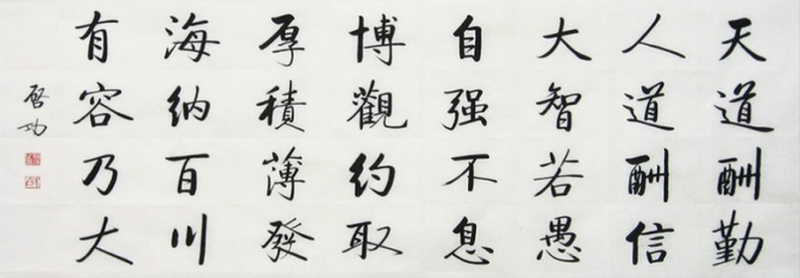 天道酬勤
人道酬信
大智若愚
自强不息
博觀約取
厚積薄發
海納百川
有容乃大
啓功